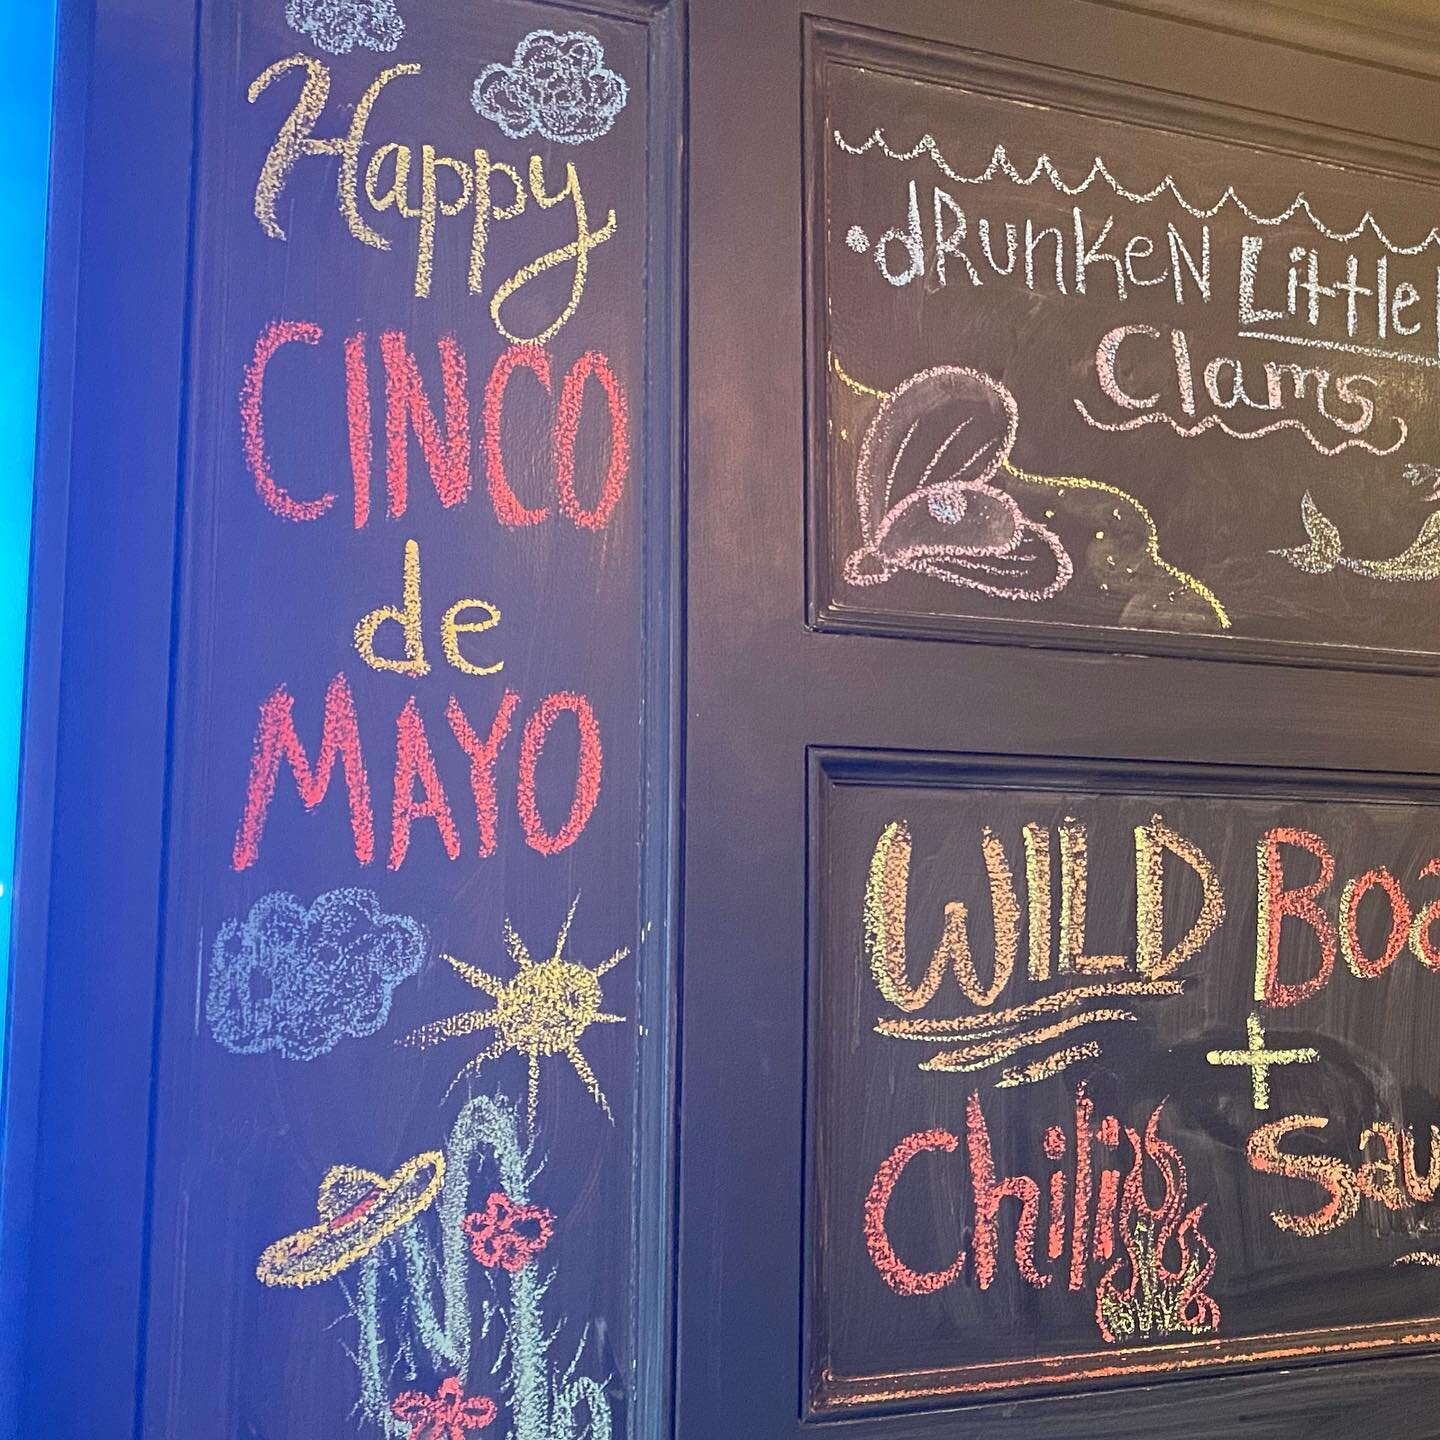 Happy
CINCO
de
MAYO
•dRunkeN Little
Clams
WILD
+
Chili